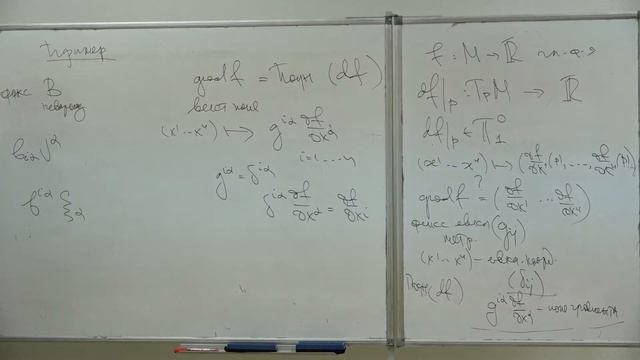 Пример
фикс B
неворож
b_{iα} V^α
b^{iα} ξ_α
grad f = Подн (df)
вект поле
(x¹...xⁿ) ↦ g^{iα} ∂f/∂x^α
i = 1, ..., n
g^{iα} = δ^{iα}
δ^{iα} ∂f/∂x^α = ∂f/∂x^i
f : M → ℝ гл. ф-я
df|_p : T_p M → ℝ
df|_p ∈ T^0_1
(x¹...xⁿ) ↦ (∂f/∂x¹(p), ..., ∂f/∂xⁿ(p))
grad f ?= (∂f/∂x¹ ... ∂f/∂xⁿ)
фикс евкл (g_{ij})
метр.
(x¹...xⁿ) - евкл. коорд.
(δ_{ij})
Подн (df)
g^{iα} ∂f/∂x^α - поле градиента